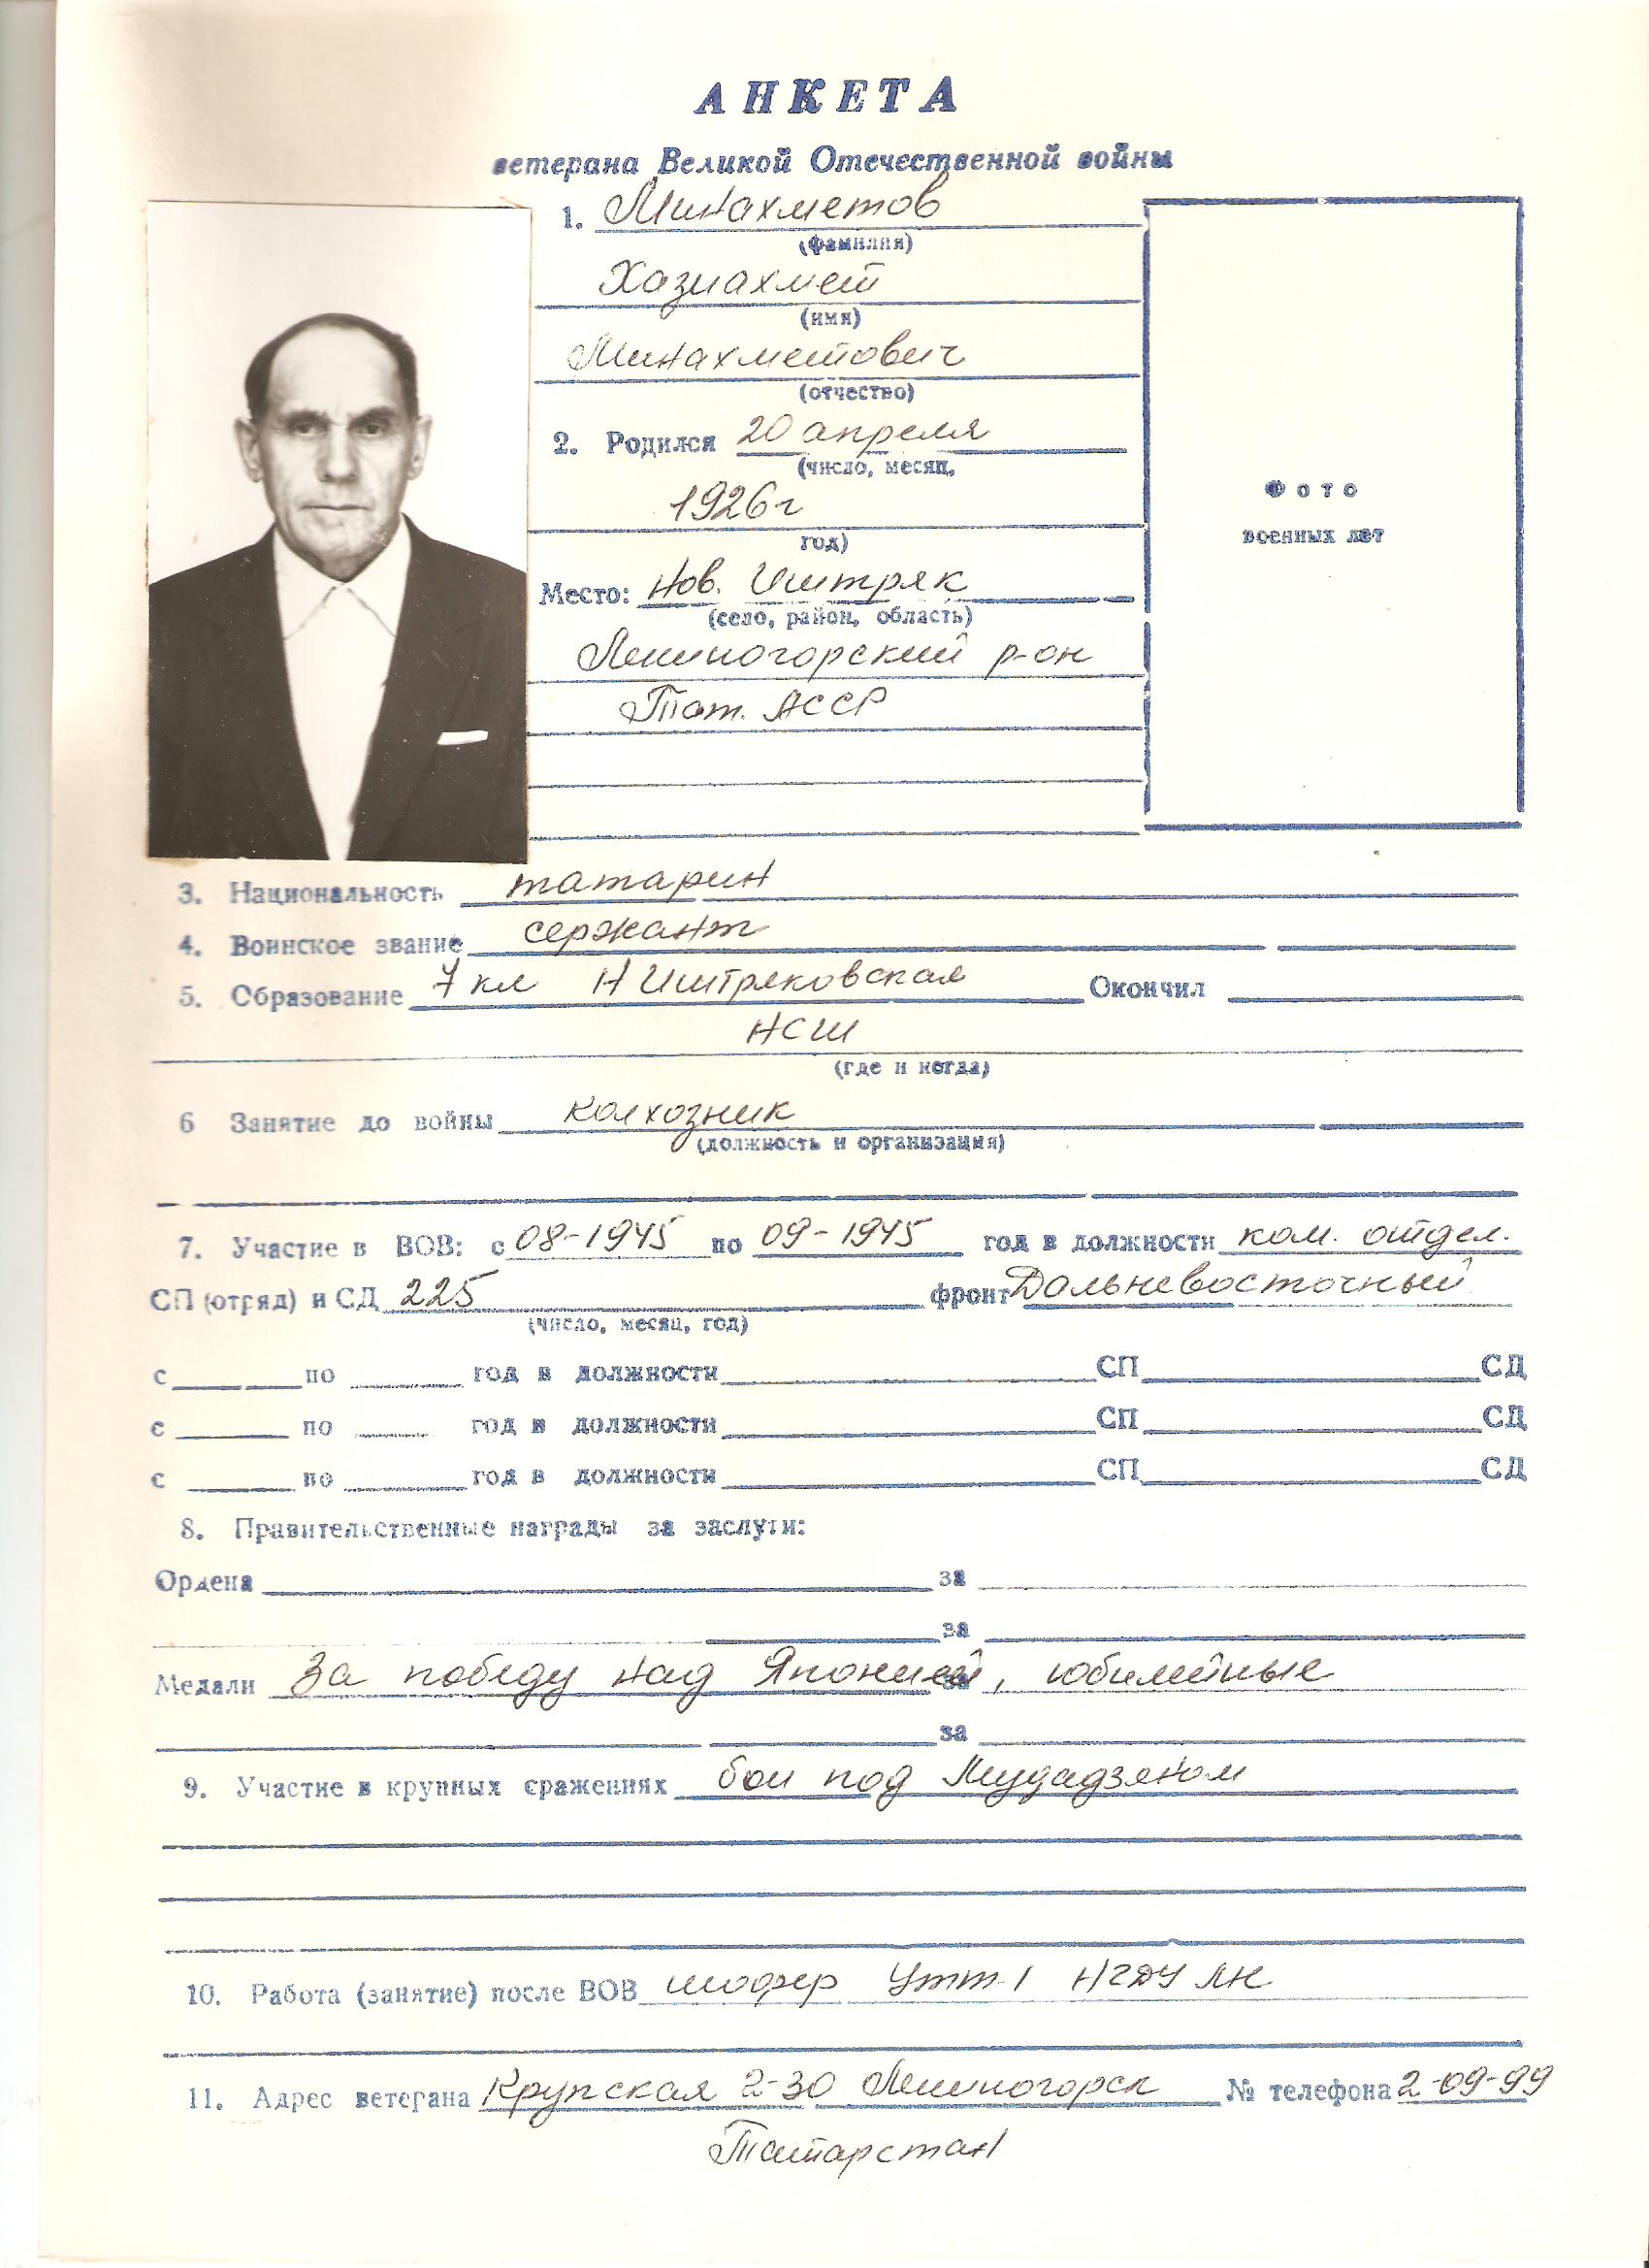 АНКЕТА
ветерана Великой Отечественной войны
1. Минахметов
(фамилия)
Хазиахмет
(имя)
Минахметович
(отчество)
2. Родился 20 апреля
(число, месяц,
1926 г
год)
Место: Нов. Иштряк
(село, район, область)
Лениногорский р-он
Тат. АССР
Фото
военных лет
3. Национальность татарин
4. Воинское звание сержант
5. Образование 7 кл Н Иштряковская Окончил
НСШ
(где и когда)
6 Занятие до войны колхозник
(должность и организация)
7. Участие в ВОВ: с 08-1945 по 09-1945 год в должности ком. отдел.
СП (отряд) и СД 225 фронт Дальневосточный
(число, месяц, год)
с по год в должности СП СД
с по год в должности СП СД
с по год в должности СП СД
8. Правительственные награды за заслуги:
Ордена за
за
Медали За победу над Японией за, юбилейные
за
9. Участие в крупных сражениях бои под Мудадзяном
10. Работа (занятие) после ВОВ шофер УТТ-1 НГДУ ЛН
11. Адрес ветерана Крупская 2-30 Лениногорск № телефона 2-09-99
Татарстан